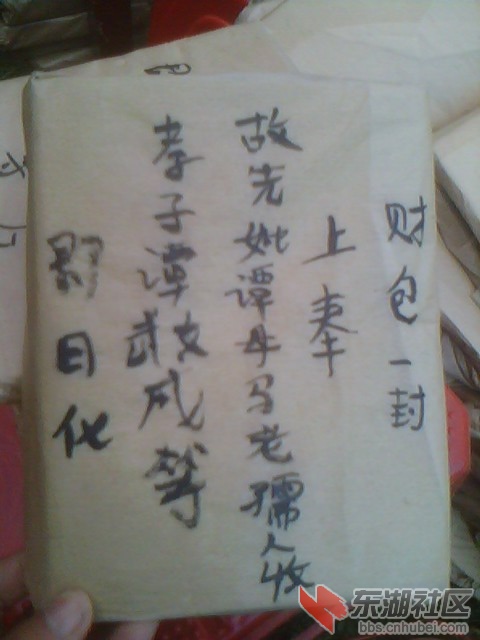 财包一封
上奉
故先妣谭母马老孺人收
孝子谭文武成等
即日化
东湖社区
bbs.cnhubei.com